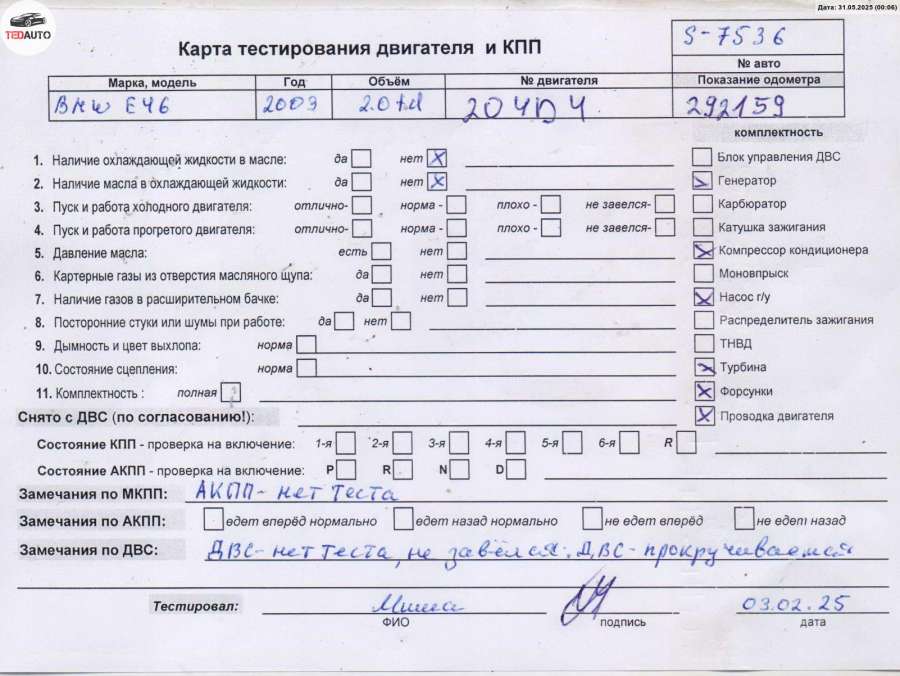 Дата: 31.05.2025 (00:06)
TEDAUTO
Карта тестирования двигателя и КПП
S-7536
№ авто
Марка, модель Год Объём № двигателя Показание одометра
BMW E46 2003 2.0td 204D4 292159
комплектность
1. Наличие охлаждающей жидкости в масле: да нет X
2. Наличие масла в охлаждающей жидкости: да нет X
3. Пуск и работа холодного двигателя: отлично- норма - плохо - не завелся-
4. Пуск и работа прогретого двигателя: отлично- норма - плохо - не завелся-
5. Давление масла: есть нет
6. Картерные газы из отверстия масляного щупа: да нет
7. Наличие газов в расширительном бачке: да нет
8. Посторонние стуки или шумы при работе: да нет
9. Дымность и цвет выхлопа: норма
10. Состояние сцепления: норма
11. Комплектность : полная
Блок управления ДВС
Генератор
Карбюратор
Катушка зажигания
Компрессор кондиционера
Моновпрыск
Насос г/у
Распределитель зажигания
ТНВД
Турбина
Форсунки
Проводка двигателя
Снято с ДВС (по согласованию!):
Состояние КПП - проверка на включение: 1-я 2-я 3-я 4-я 5-я 6-я R
Состояние АКПП - проверка на включение: P R N D
Замечания по МКПП: АКПП - нет теста
Замечания по АКПП: едет вперёд нормально едет назад нормально не едет вперёд не едет назад
Замечания по ДВС: ДВС - нет теста, не завёлся. ДВС - прокручивается
Тестировал: Миша 03.02.25
ФИО подпись дата